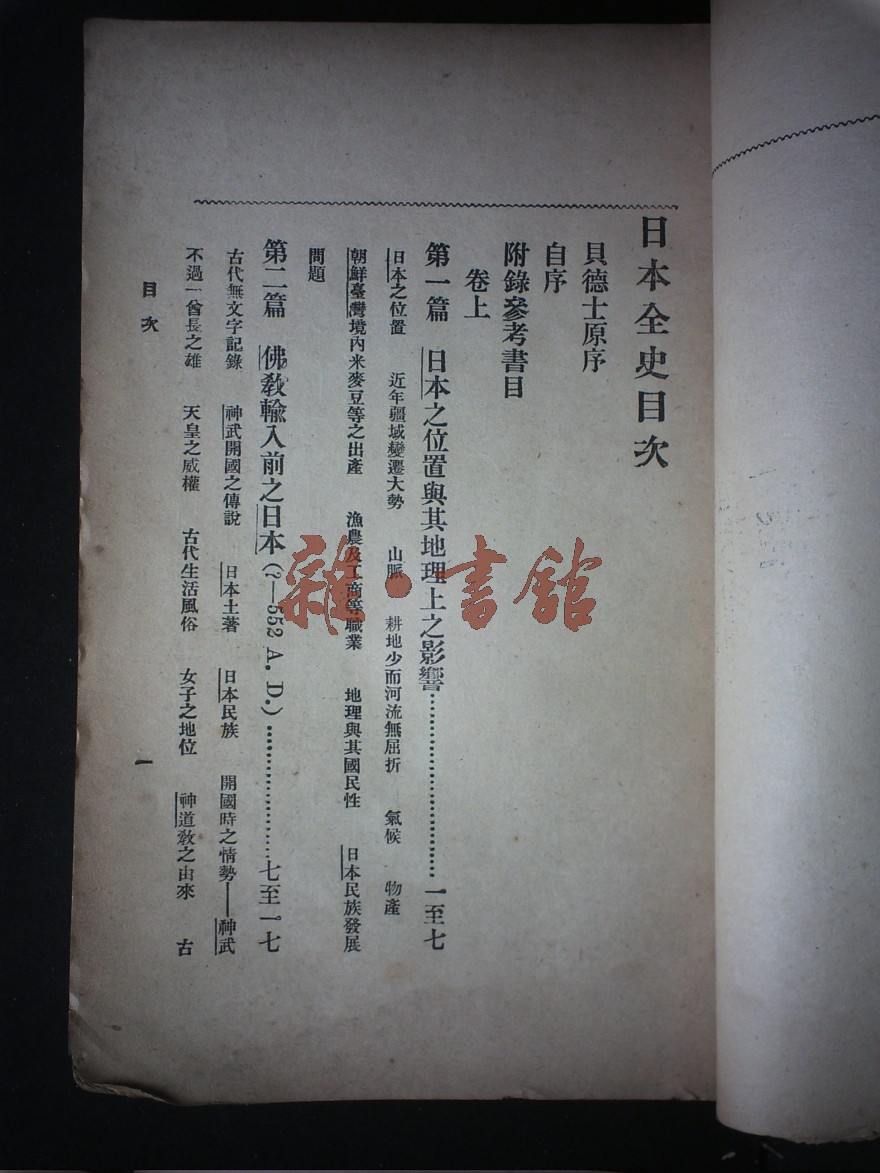 日本全史目次
貝德士原序
自序
附錄參考書目
卷上
第一篇　日本之位置與其地理上之影響……………………一至七
日本之位置　近年疆域變遷大勢　山脈　耕地少而河流無屈折　氣候　物產
朝鮮臺灣境內米麥豆等之出產　漁農及工商等職業　地理與其國民性　日本民族發展
問題
第二篇　佛敎輸入前之日本(?—552 A. D.)……………………七至一七
古代無文字記錄　神武開國之傳說　日本土著　日本民族　開國時之情勢——神武
不過一酋長之雄　天皇之威權　古代生活風俗　女子之地位　神道敎之由來　古
目次
一
雜·書館